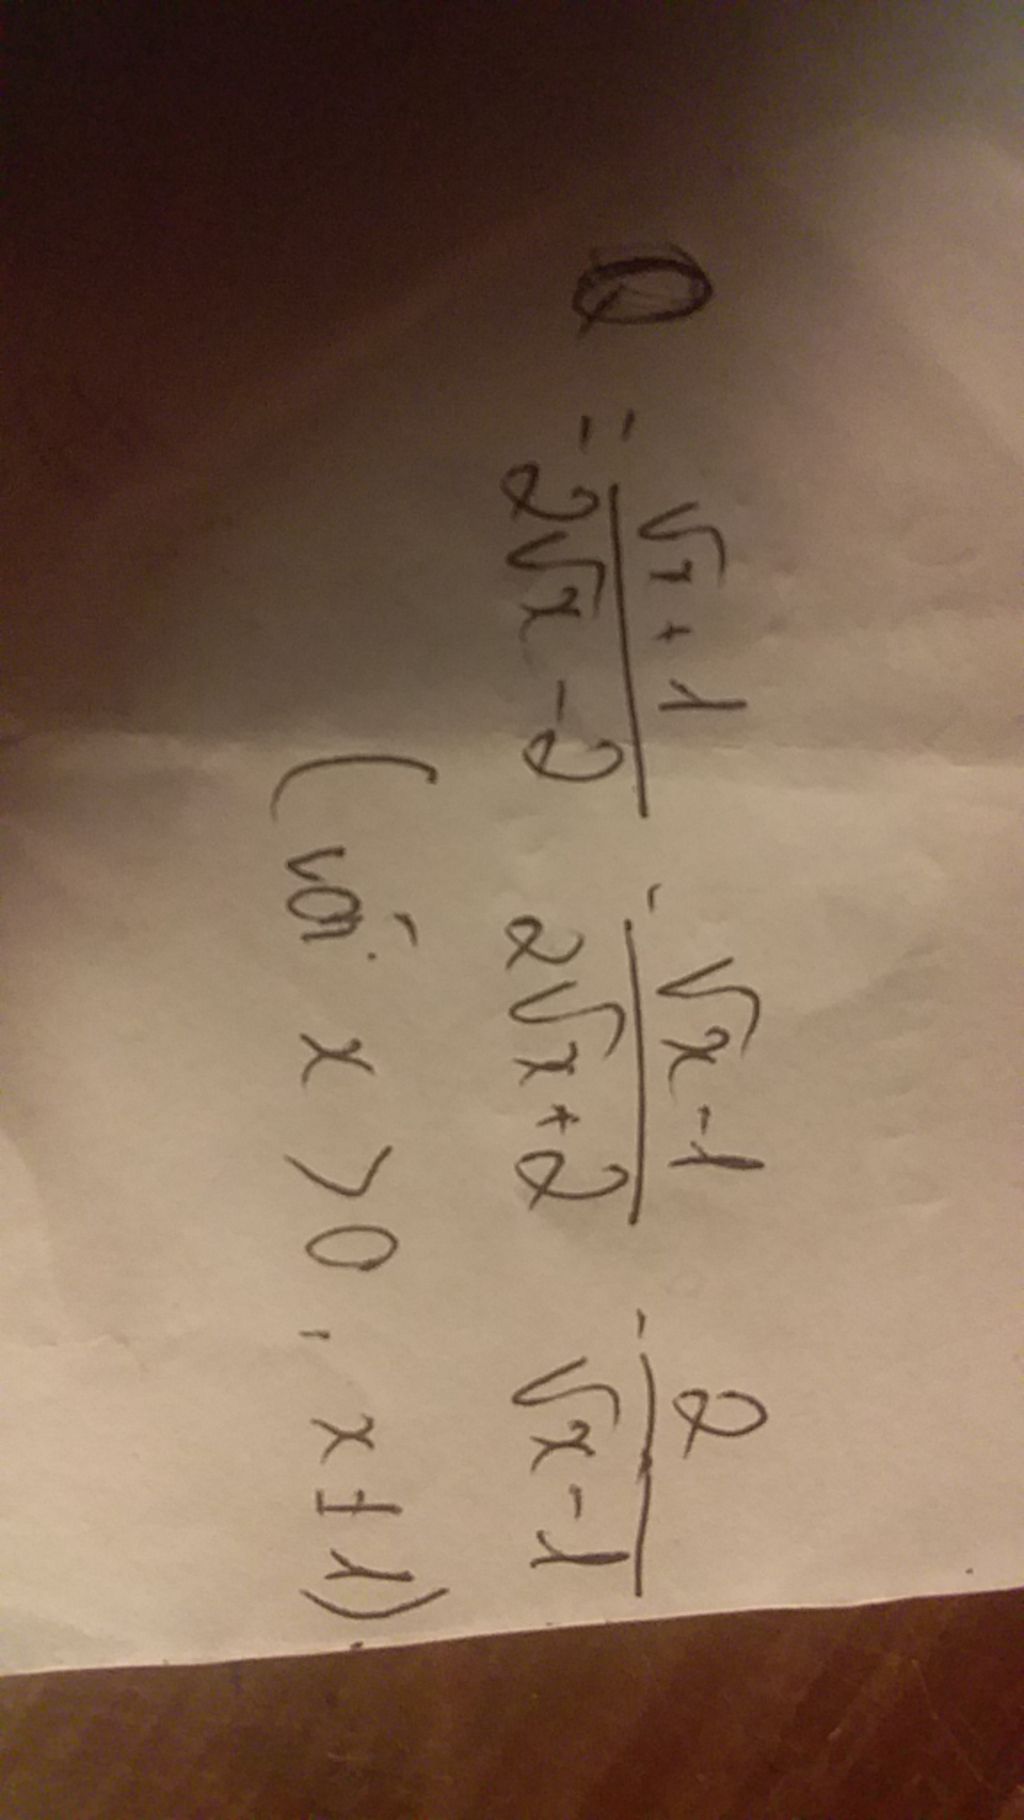 Q = \frac{\sqrt{x}+1}{2\sqrt{x}-2} - \frac{\sqrt{x}-1}{2\sqrt{x}+2} - \frac{2}{\sqrt{x}-1}
(với x > 0, x ≠ 1)